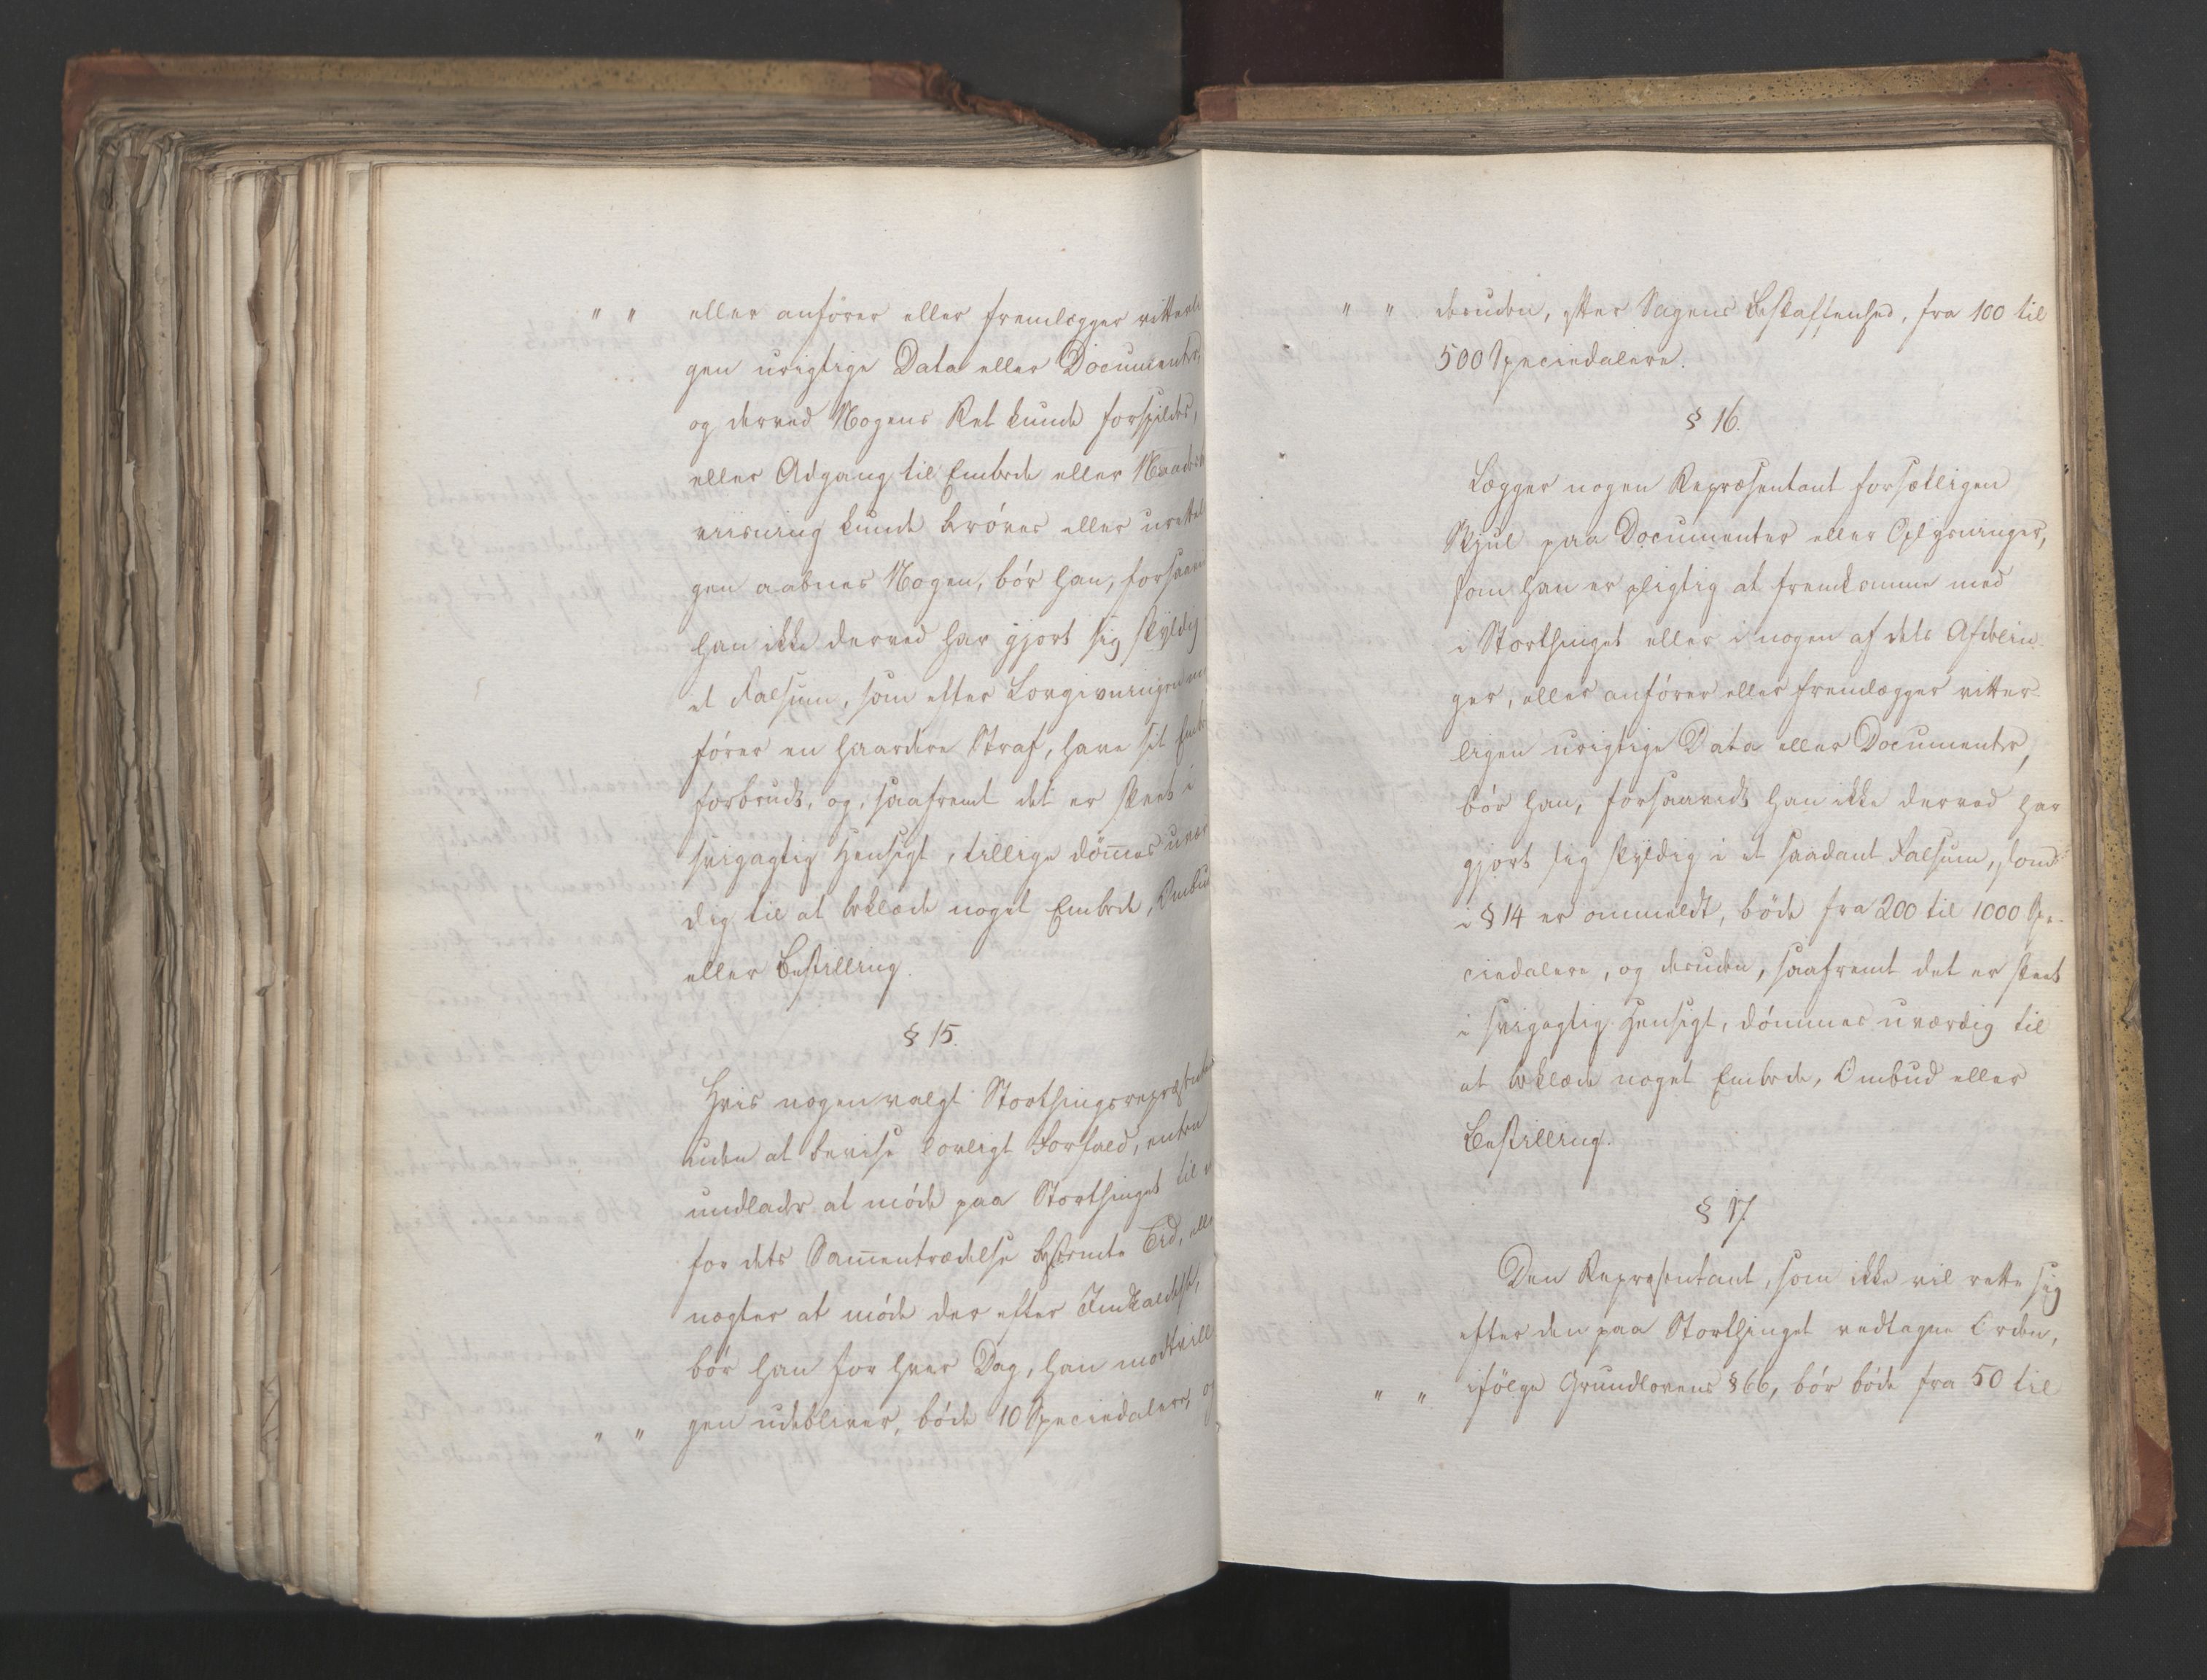 " " eller anfører eller fremlægger vitterli
gen urigtige Data eller Documenter,
og derved Nogens Ret kunde forspildes,
eller Adgang til Embede eller Naades
viisning kunde berøves eller uretteli
gen aabnes Nogen, bør han, forsaavi
han ikke derved har gjort sig skyldig
et Falsum, som efter Lovgivningen
fører en haardere Straf, have sit Embe
forbrudt, og, saafremt det er skeet i
svigagtig Hensigt, tillige dømmes uvær
dig til at beklæde noget Embede, Ombud
eller Bestilling.
§ 15.
Hvis nogen valgt Storthingsrepræsentant
uden at bevise lovligt Forfald, enten
undlader at møde paa Storthinget til
for dets Sammentrædelse bestemte Tid, elle
nægter at møde der efter Indkaldelse,
bør han for hver Dag, han modtvilli
" " gen udebliver, bøde 10 Speciedaler, og
" " desuden, efter Sagens Beskaffenhed, fra 100 til
500 Speciedalere.
§ 16.
Lægger nogen Repræsentant forsætligen
Skjul paa Documenter eller Oplysninger,
som han er pligtig at fremkomme med
i Storthinget eller i nogen af dets Afdelin
ger, eller anfører eller fremlægger vitter-
ligen urigtige Data eller Documenter,
bør han, forsaavidt han ikke derved har
gjort sig skyldig i et saadant Falsum, som
i § 14 er ommeldt, bøde fra 200 til 1000 Spe-
ciedalere, og desuden, saafremt det er skeet
i svigagtig Hensigt, dømmes uværdig til
at beklæde noget Embede, Ombud eller
Bestilling.
§ 17.
Den Repræsentant, som ikke vil rette sig
efter den paa Storthinget vedtagne Orden,
" " ifølge Grundlovens § 66, bør bøde fra 50 til